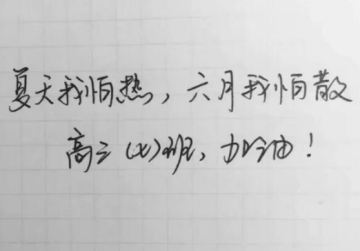 夏天我怕热，六月我怕散
高三(x)班，加油！